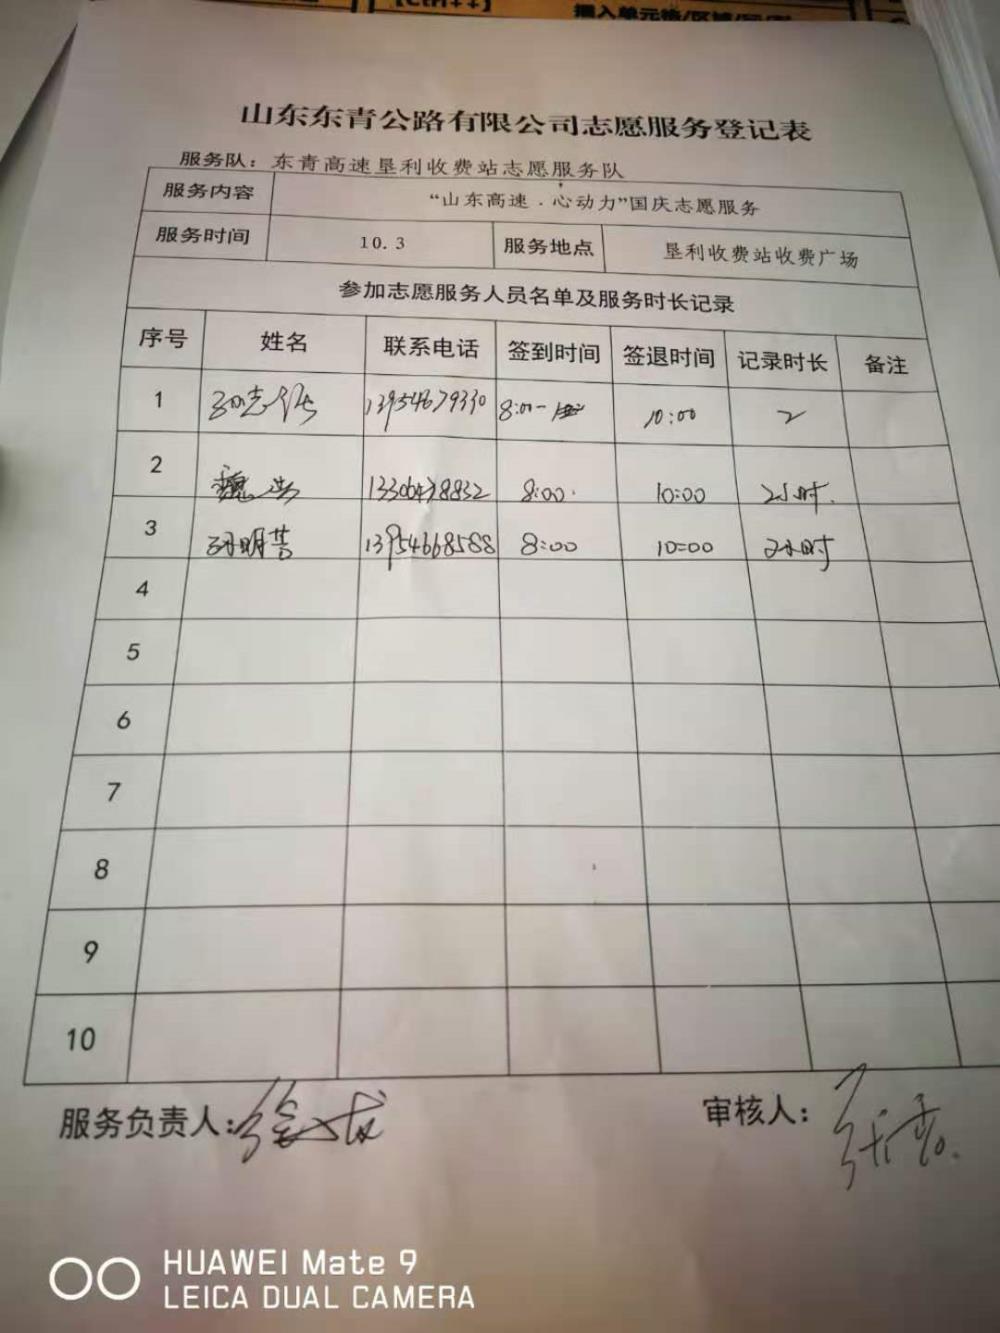 【Ctrl++】 插入单元格/区域/行/列
山东东青公路有限公司志愿服务登记表
服务队：东青高速垦利收费站志愿服务队
服务内容 “山东高速．心动力”国庆志愿服务
服务时间 10.3 服务地点 垦利收费站收费广场
参加志愿服务人员名单及服务时长记录
序号 姓名 联系电话 签到时间 签退时间 记录时长 备注
1 13954679330 8:00 10:00 2
2 8:00 10:00 2小时.
3 13954668588 8:00 10:00 2小时
4
5
6
7
8
9
10
服务负责人: 审核人:
HUAWEI Mate 9
LEICA DUAL CAMERA